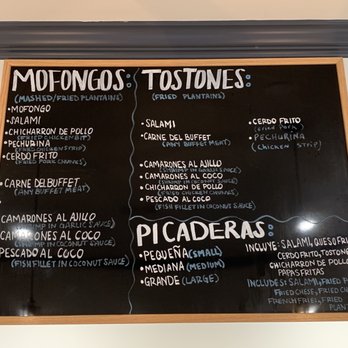 MOFONGOS:
(MASHED/FRIED PLANTAINS)
•MOFONGO
•SALAMI
•CHICHARRON DE POLLO
(FRIED CHICKEN BIT)
•PECHURINA
(FRIED CHICKEN STRIP)
•CERDO FRITO
(FRIED PORK CHUNKS)
•CARNE DEL BUFFET
(ANY BUFFET MEAT)
CAMARONES AL AJILLO
(SHRIMP IN GARLIC SAUCE)
CAMARONES AL COCO
(SHRIMP IN COCONUT SAUCE)
PESCADO AL COCO
(FISH FILLET IN COCONUT SAUCE)
TOSTONES:
(FRIED PLANTAINS)
•SALAMI
•CARNE DEL BUFFET
(ANY BUFFET MEAT)
•CAMARONES AL AJILLO
(SHRIMP IN GARLIC SAUCE)
•CAMARONES AL COCO
(SHRIMP IN COCONUT SAUCE)
•CHICHARRON DE POLLO
(FRIED CHICKEN)
•PESCADO AL COCO
(FISH FILLET IN COCONUT SAUCE)
•CERDO FRITO
(FRIED PORK)
•PECHURINA
(CHICKEN STRIP)
PICADERAS:
•PEQUEÑA (SMALL)
•MEDIANA (MEDIUM)
•GRANDE (LARGE)
INCLUYE: SALAMI, QUESO FRI
CERDO FRITO, TOSTONE
CHICHARRON DE POLLO
PAPAS FRITAS
INCLUDES: SALAMI, FRIED
FRIED CHEESE, FRIED
FRENCH FRIES, FRIED
PLAN